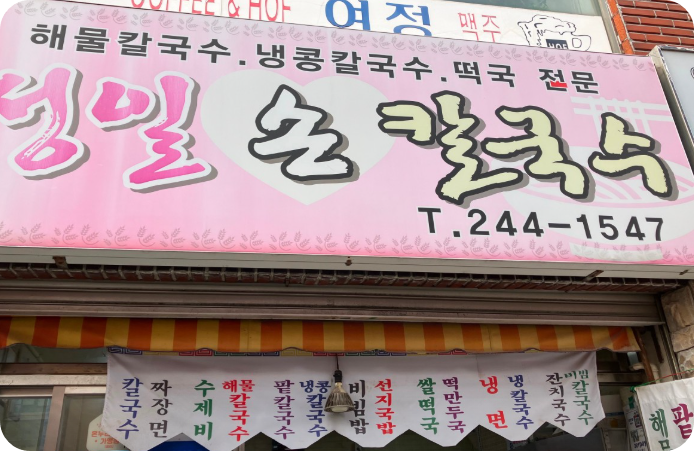 COFFEE & HOF 여정 맥주
HOF
해물칼국수.냉콩칼국수.떡국 전문
손 칼국수
T.244-1547
칼국수
짜장면
수제비
해물칼국수
팥칼국수
냉콩칼국수
비빔밥
선지국밥
쌀떡국
떡만두국
냉면
냉칼국수
잔치국수
비빔칼국수
팥
해물